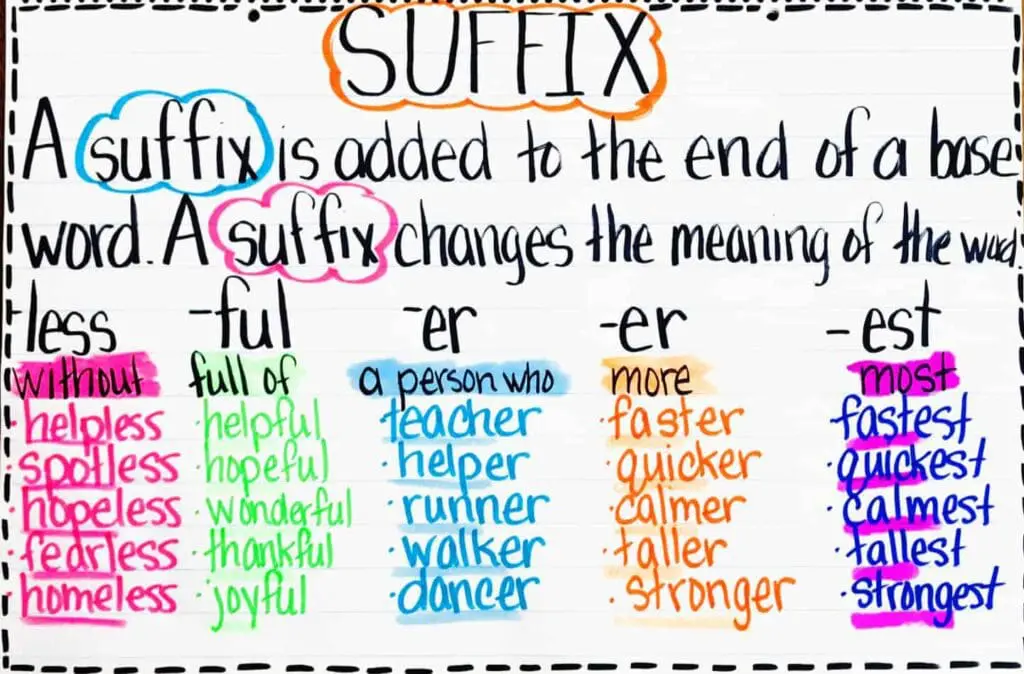 SUFFIX
A suffix is added to the end of a base
word. A suffix changes the meaning of the word.
-less -ful -er -er -est
without full of a person who more most
·helpless ·helpful ·teacher ·faster ·fastest
·spotless ·hopeful ·helper ·quicker ·quickest
·hopeless ·wonderful ·runner ·calmer ·calmest
·fearless ·thankful ·walker ·taller ·tallest
·homeless ·joyful ·dancer ·stronger ·strongest